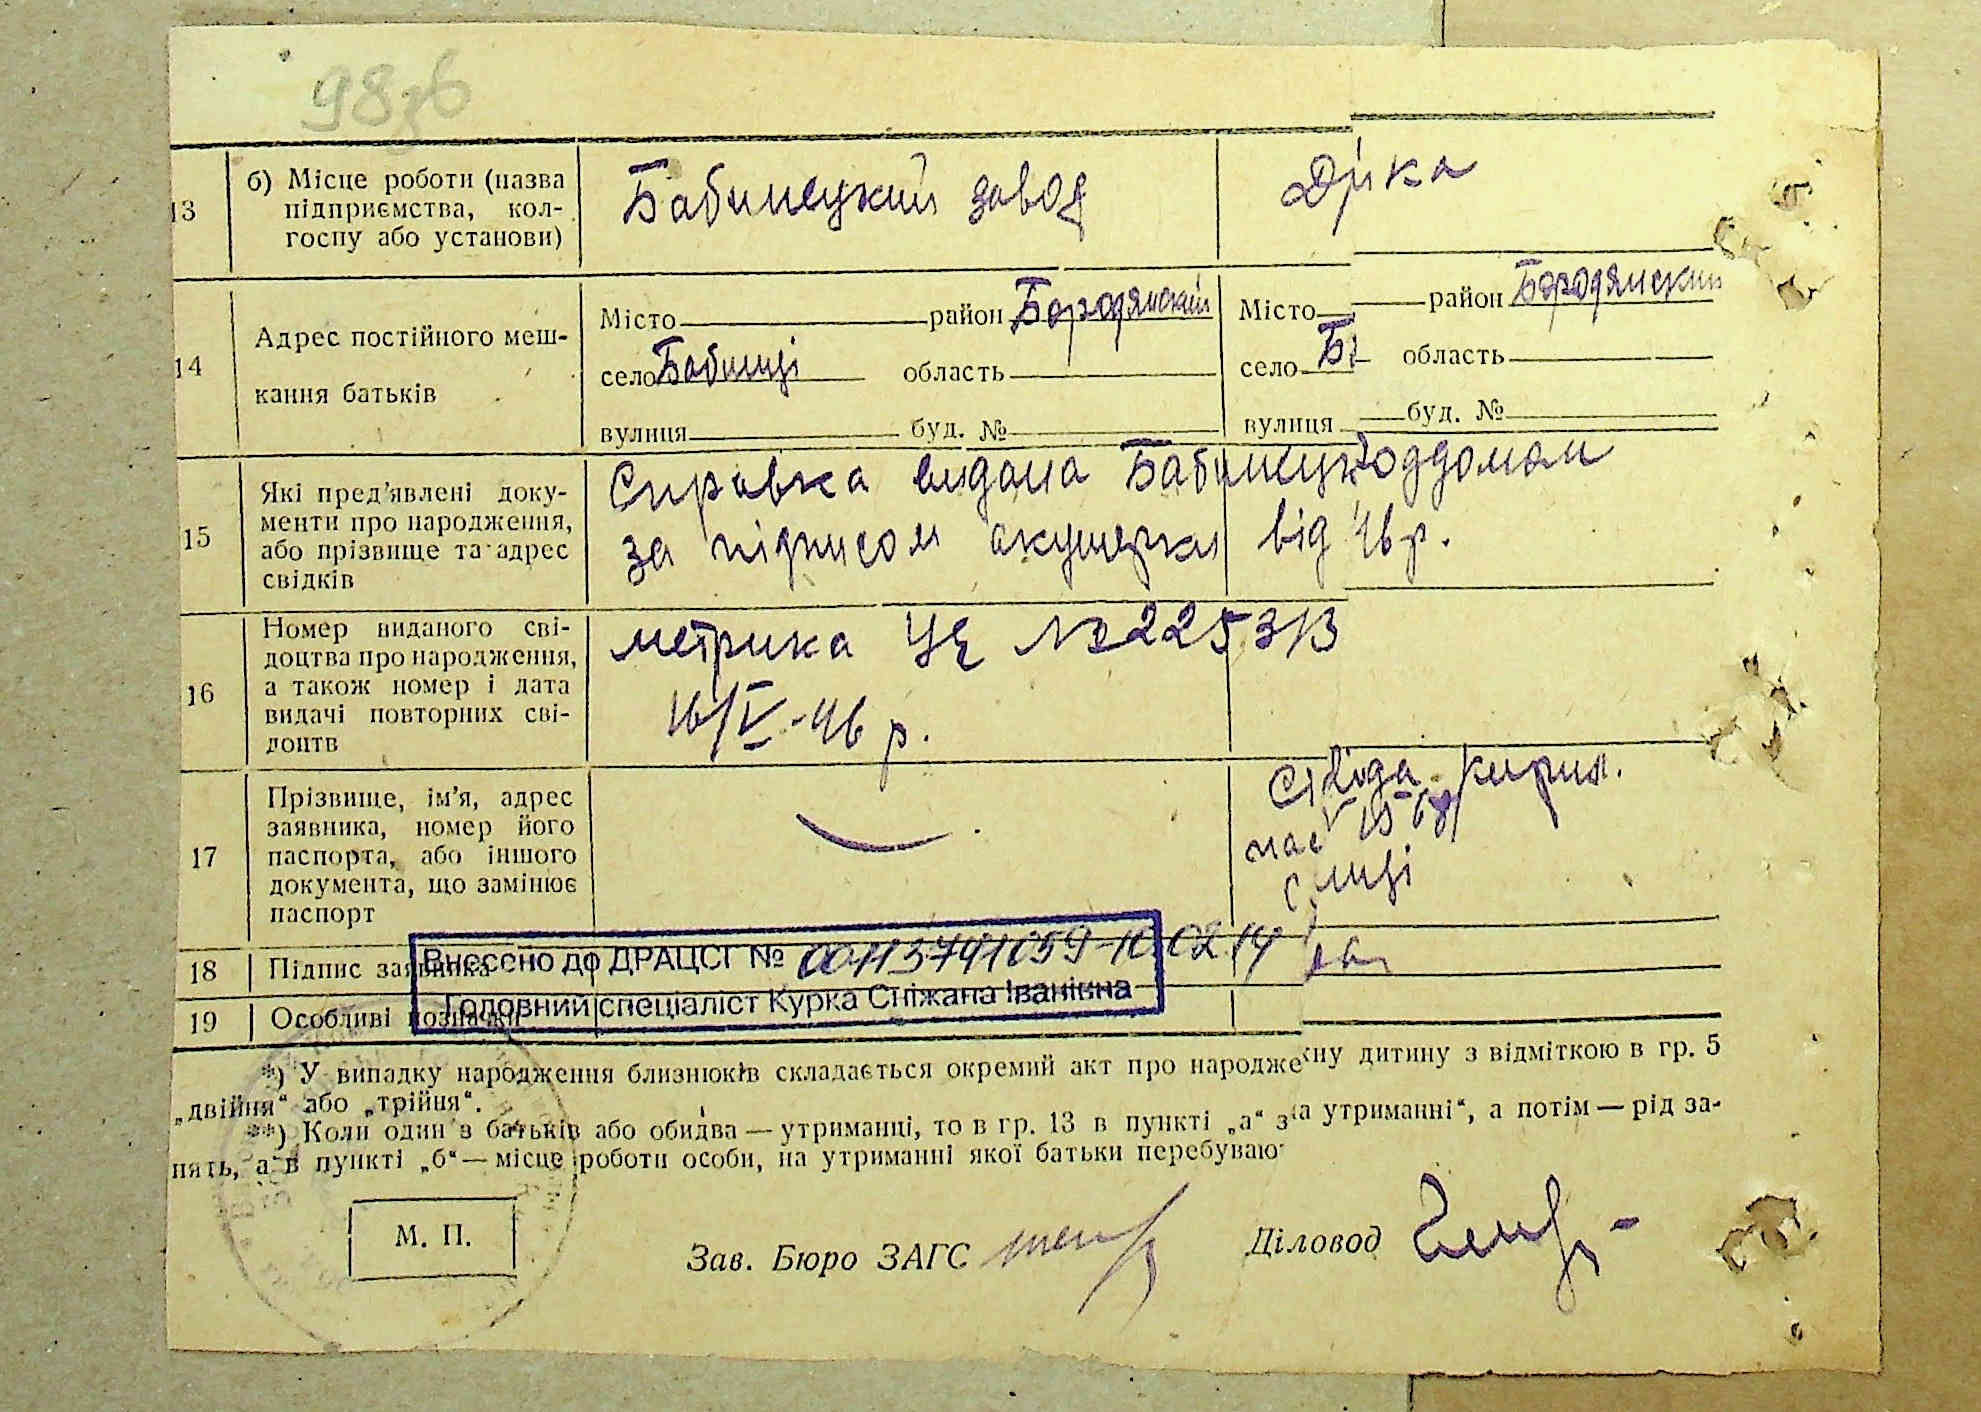 98зв
13
б) Місце роботи (назва
підприємства, кол-
госпу або установи)
Бабинецкий завод
14
Адрес постійного меш-
кання батьків
Місто район Бородянский
село Бабинці область
вулиця буд. №
Місто район Бородянский
село Б область
вулиця буд. №
15
Які пред'явлені доку-
менти про народження,
або прізвище та адрес
свідків
Справка видана
за підписом акушерки від 46 р.
16
Номер виданого сві-
доцтва про народження,
а також номер і дата
видачі повторних сві-
доцтв
метрика № 225313
16/V-46 р.
17
Прізвище, ім'я, адрес
заявника, номер його
паспорта, або іншого
документа, що замінює
паспорт
18 Підпис заявника
19 Особливі позначки
Внесено до ДРАЦСГ №
Головний спеціаліст Курка Сніжана Іванівна
*) У випадку народження близнюків складається окремий акт про народже жну дитину з відміткою в гр. 5
„двійня“ або „трійня“.
**) Коли один з батьків або обидва — утриманці, то в гр. 13 в пункті „а“ з на утриманні“, а потім — рід за-
нять, а в пункті „б“ — місце роботи особи, на утриманні якої батьки перебуваю
М. П.
Зав. Бюро ЗАГС
Діловод